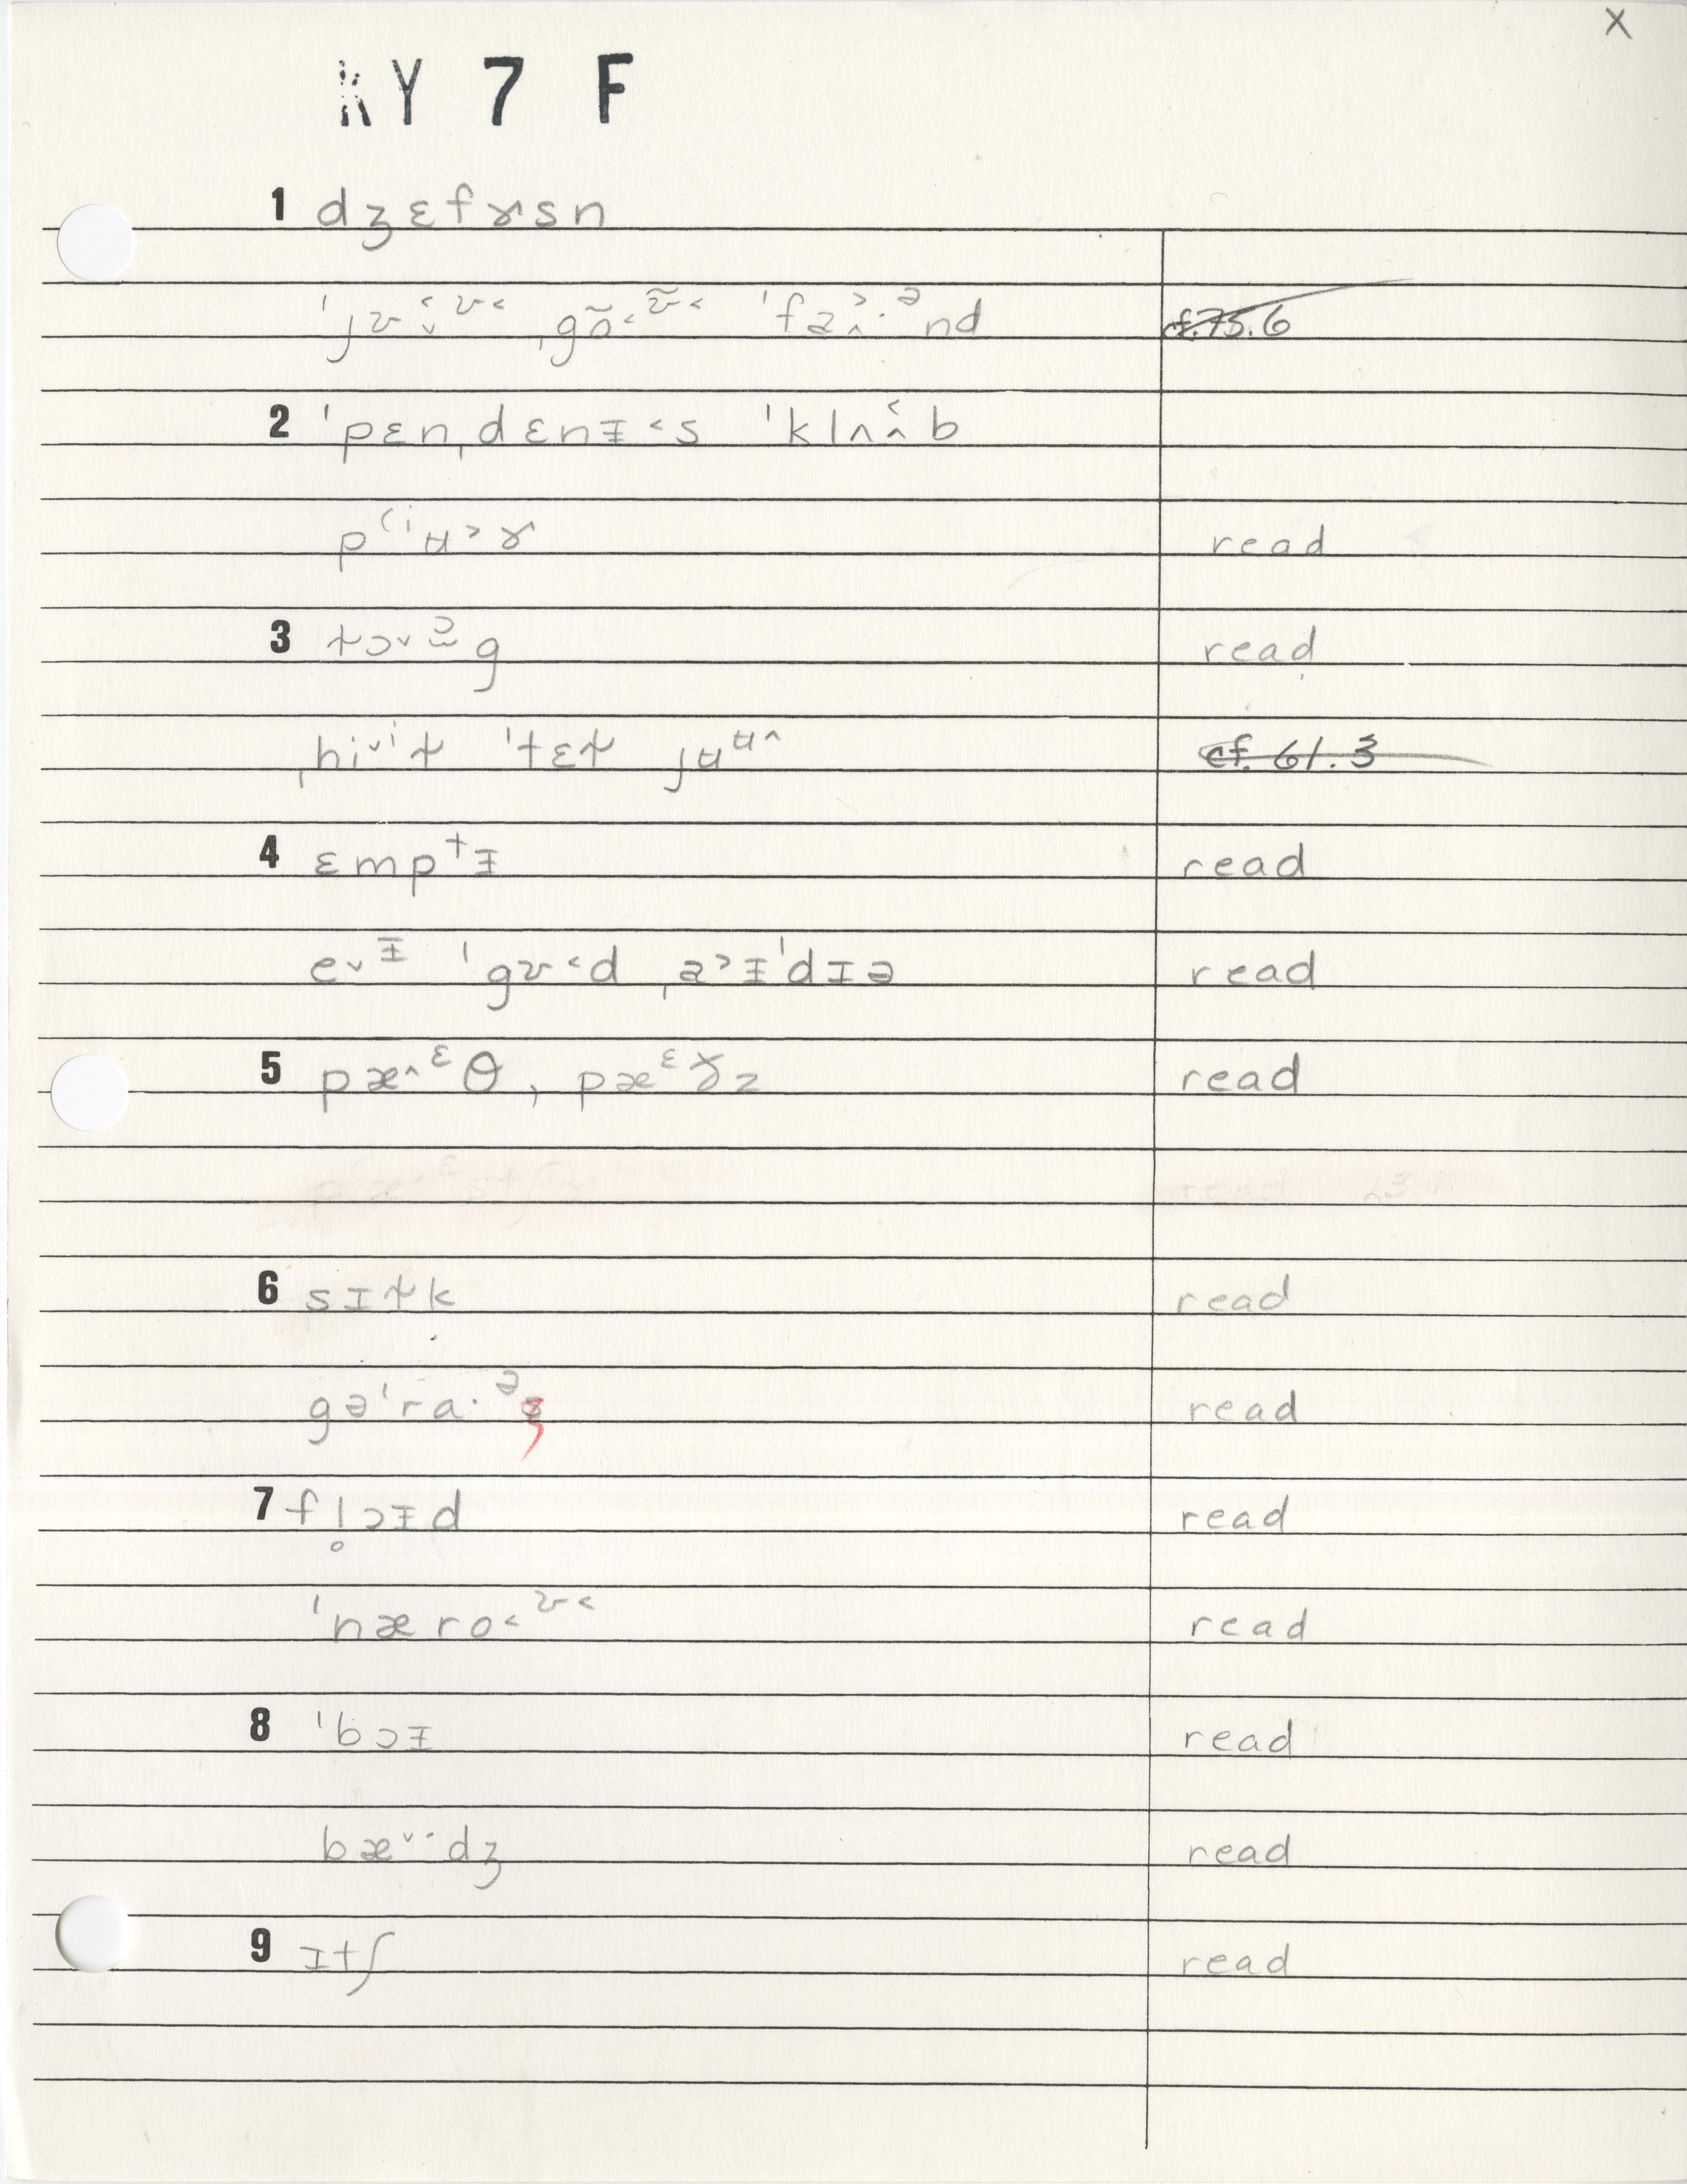 X
KY 7 F
1 dʒɛfɤsn
ˈjʊ ˌgõ˂ ˈfa nd cf. 75.6
2 ˈpɛnˌdɛnᵻ˂s ˈklʌb
p⁽ⁱ⁾ʉ˃ɤ read
3 g read
ˌhi˅ⁱɫ ˈtɛɫ jʉᶶ˄ cf. 61.3
4 ɛmpᵗᵻ read
e˅ᵻ ˈgʊ˂d ˌa˃ᵻˈdɪə read
5 pæ˄ᵋθ, pæᵋðz read
6 sɪɫk read
gəˈra·ᵊʒ read
7 fl̥ɔᵻd read
ˈnæro˂ᶷ˂ read
8 ˈbɔᵻ read
bæ˅·dʒ read
9 ɪtʃ read